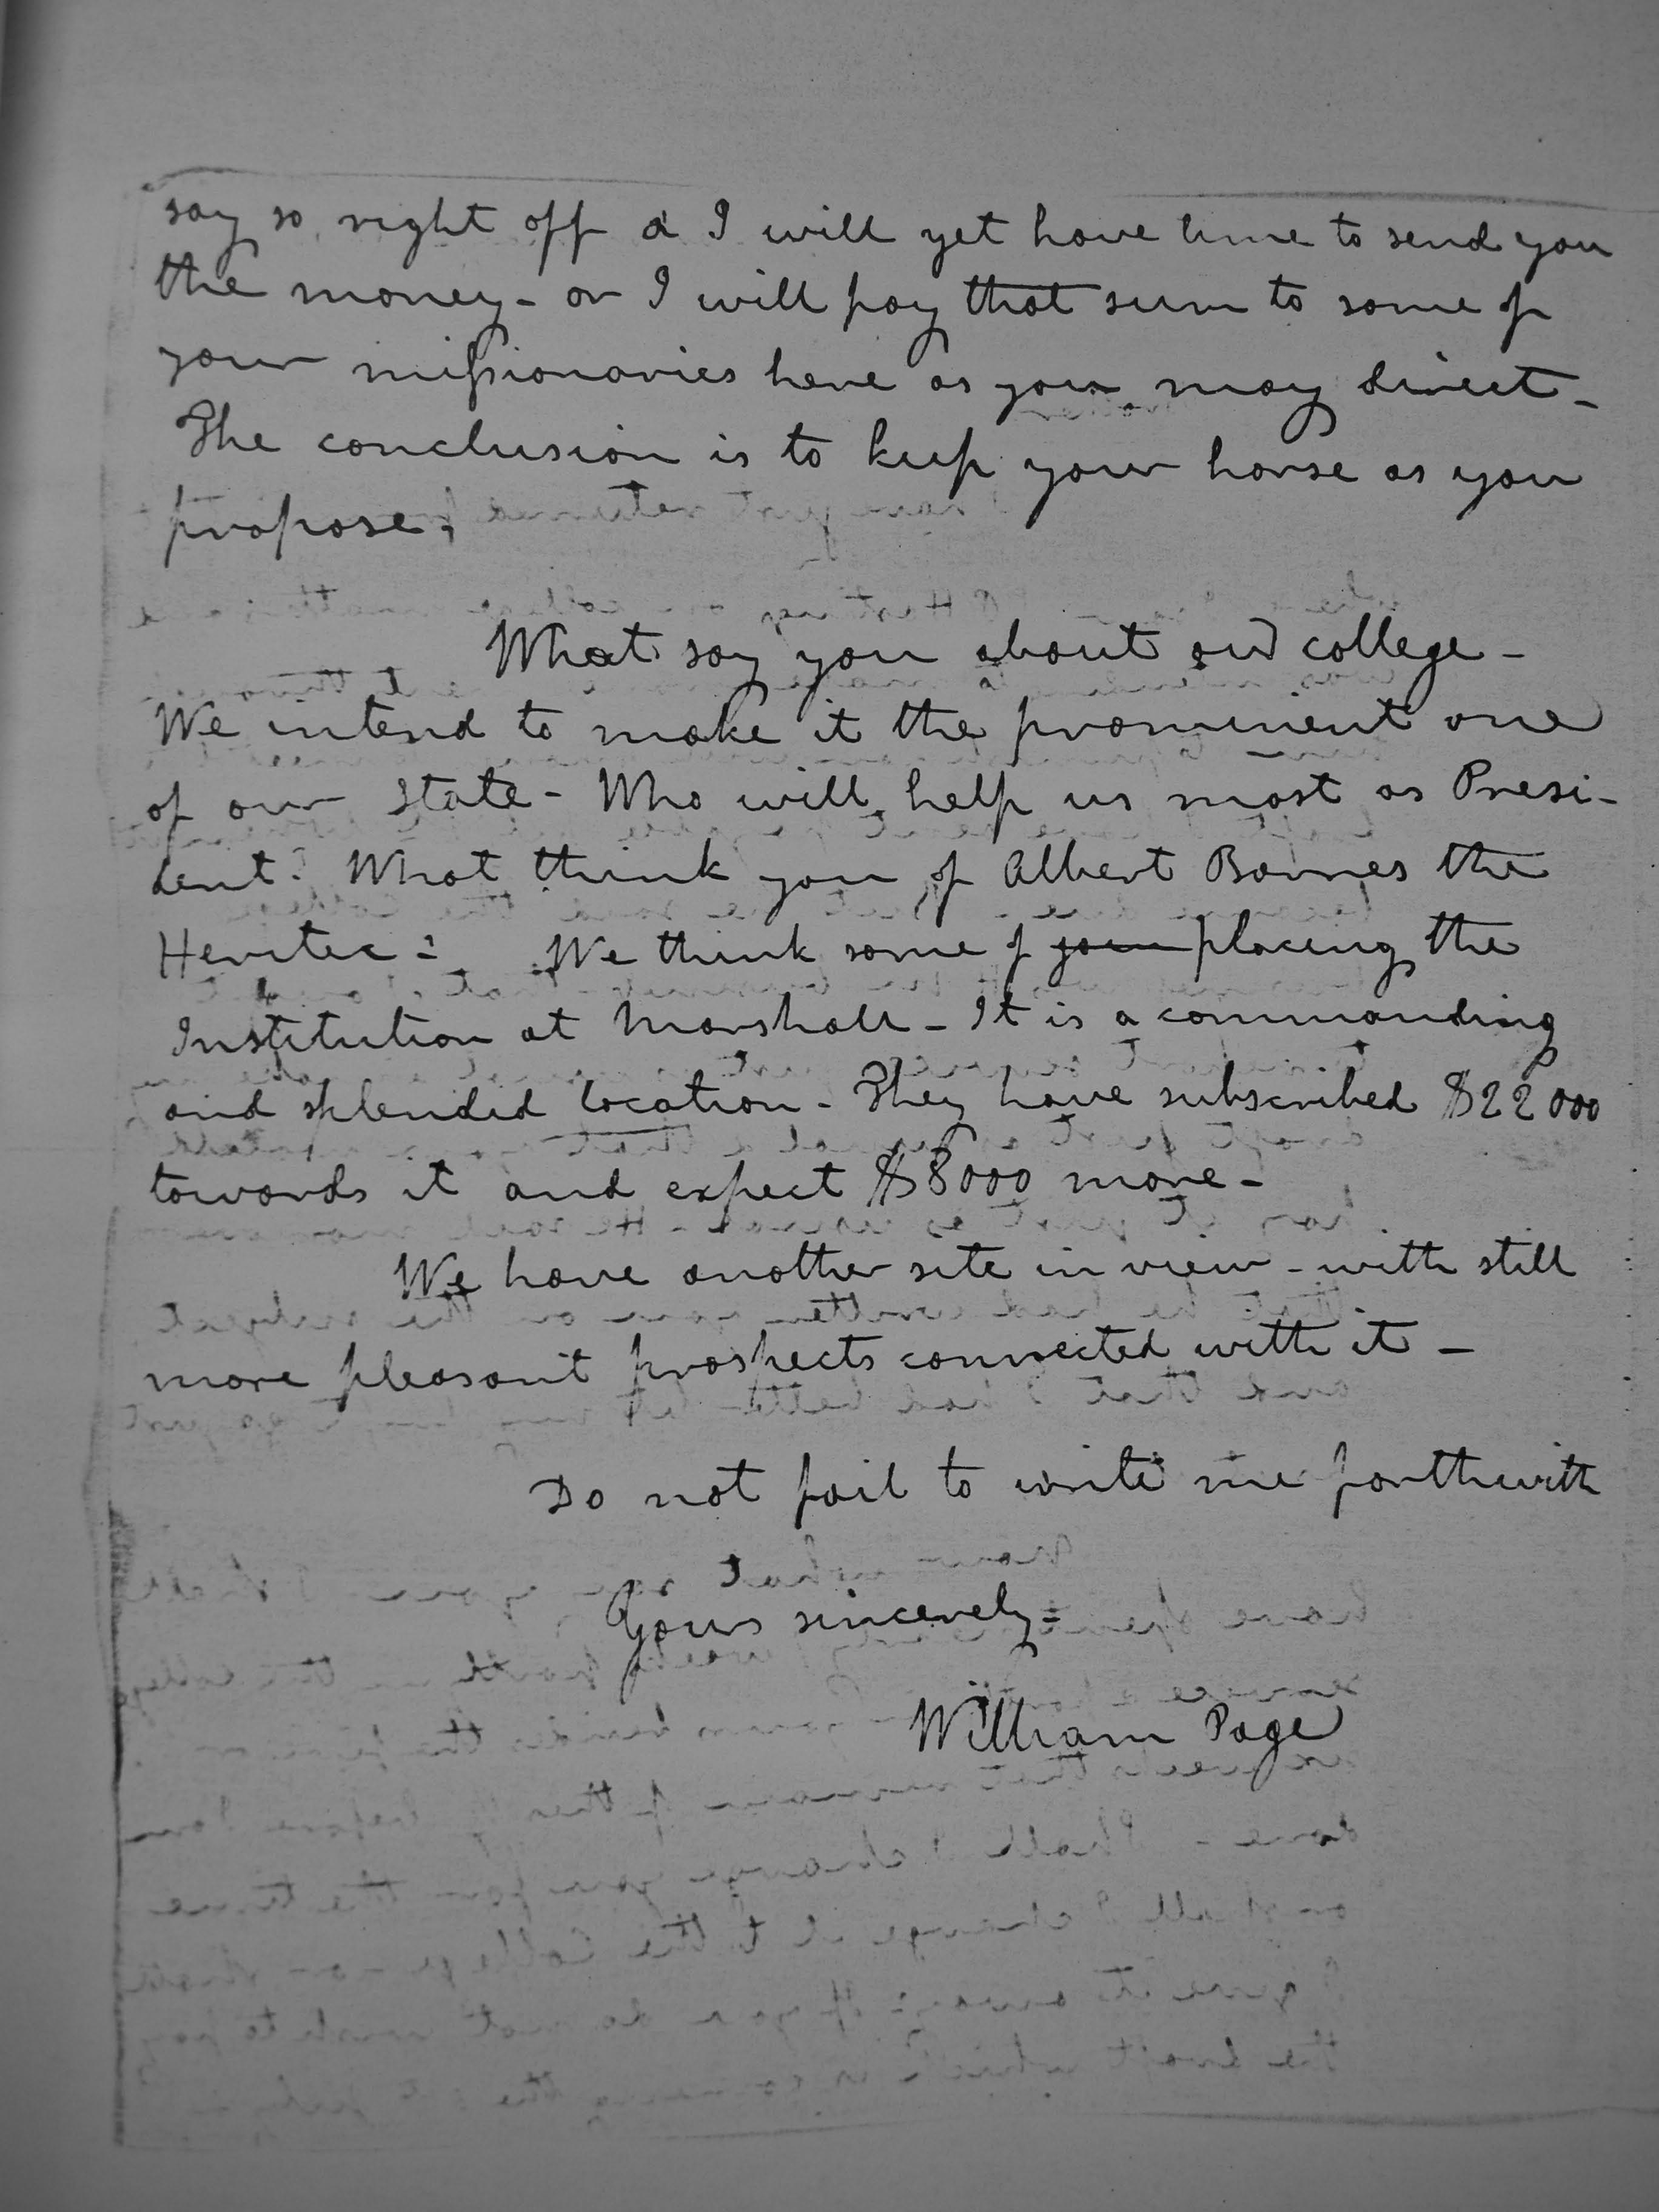 say so right off & I will yet have time to send you
the money - or I will pay that sum to some of
your missionaries here as you may direct -
The conclusion is to keep your horse as you
propose.
What say you about our college -
We intend to make it the prominent one
of our State - Who will help us most as Presi-
dent. What think you of Albert Barnes the
Heretic? We think some of your placing the
Institution at Marshall - It is a commanding
and splendid location - They have subscribed $22000
towards it and expect $8000 more -
We have another site in view - with still
more pleasant prospects connected with it -
Do not fail to write me forthwith
Yours sincerely -
William Page